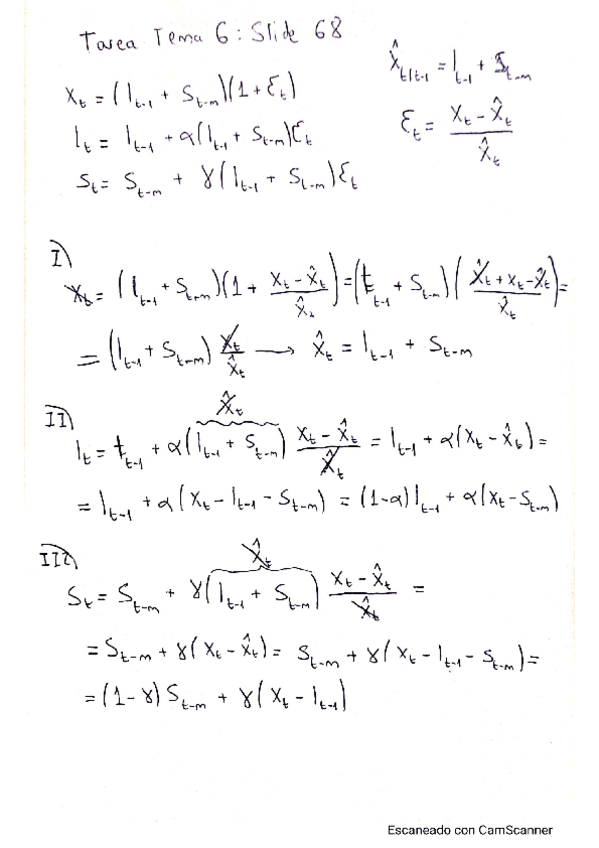 Tarea Tema 6: Slide 68
X̂_{t|t-1} = l_{t-1} + S_{t-m}
X_t = (l_{t-1} + S_{t-m})(1 + ε_t)
l_t = l_{t-1} + α(l_{t-1} + S_{t-m})ε_t
ε_t = (X_t - X̂_t)/X̂_t
S_t = S_{t-m} + γ(l_{t-1} + S_{t-m})ε_t
I)
X_t = (l_{t-1} + S_{t-m})(1 + (X_t - X̂_t)/X̂_t) = (l_{t-1} + S_{t-m})((X̂_t + X_t - X̂_t)/X̂_t) =
= (l_{t-1} + S_{t-m}) X_t/X̂_t → X̂_t = l_{t-1} + S_{t-m}
II)
X̂_t
l_t = l_{t-1} + α(l_{t-1} + S_{t-m}) (X_t - X̂_t)/X̂_t = l_{t-1} + α(X_t - X̂_t) =
= l_{t-1} + α(X_t - l_{t-1} - S_{t-m}) = (1-α) l_{t-1} + α(X_t - S_{t-m})
III)
X̂_t
S_t = S_{t-m} + γ(l_{t-1} + S_{t-m}) (X_t - X̂_t)/X̂_t =
= S_{t-m} + γ(X_t - X̂_t) = S_{t-m} + γ(X_t - l_{t-1} - S_{t-m}) =
= (1-γ) S_{t-m} + γ(X_t - l_{t-1})
Escaneado con CamScanner